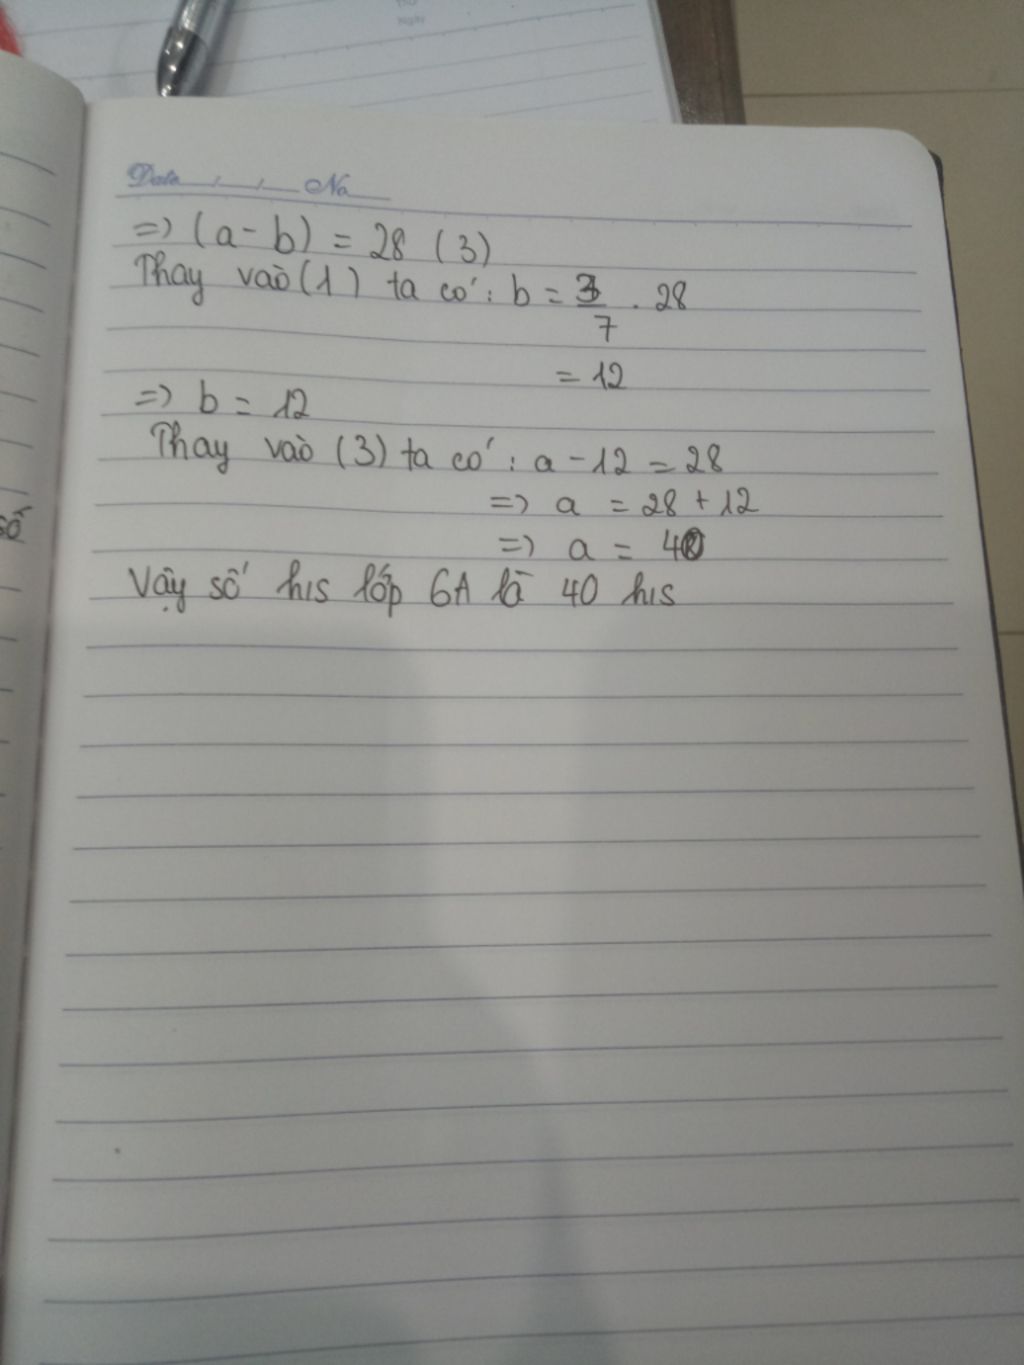 Ngày
Date / / No
=> (a - b) = 28 (3)
Thay vào (1) ta có: b = 3/7 . 28
= 12
=> b = 12
Thay vào (3) ta có: a - 12 = 28
=> a = 28 + 12
=> a = 40
Vậy số his lớp 6A là 40 his
số